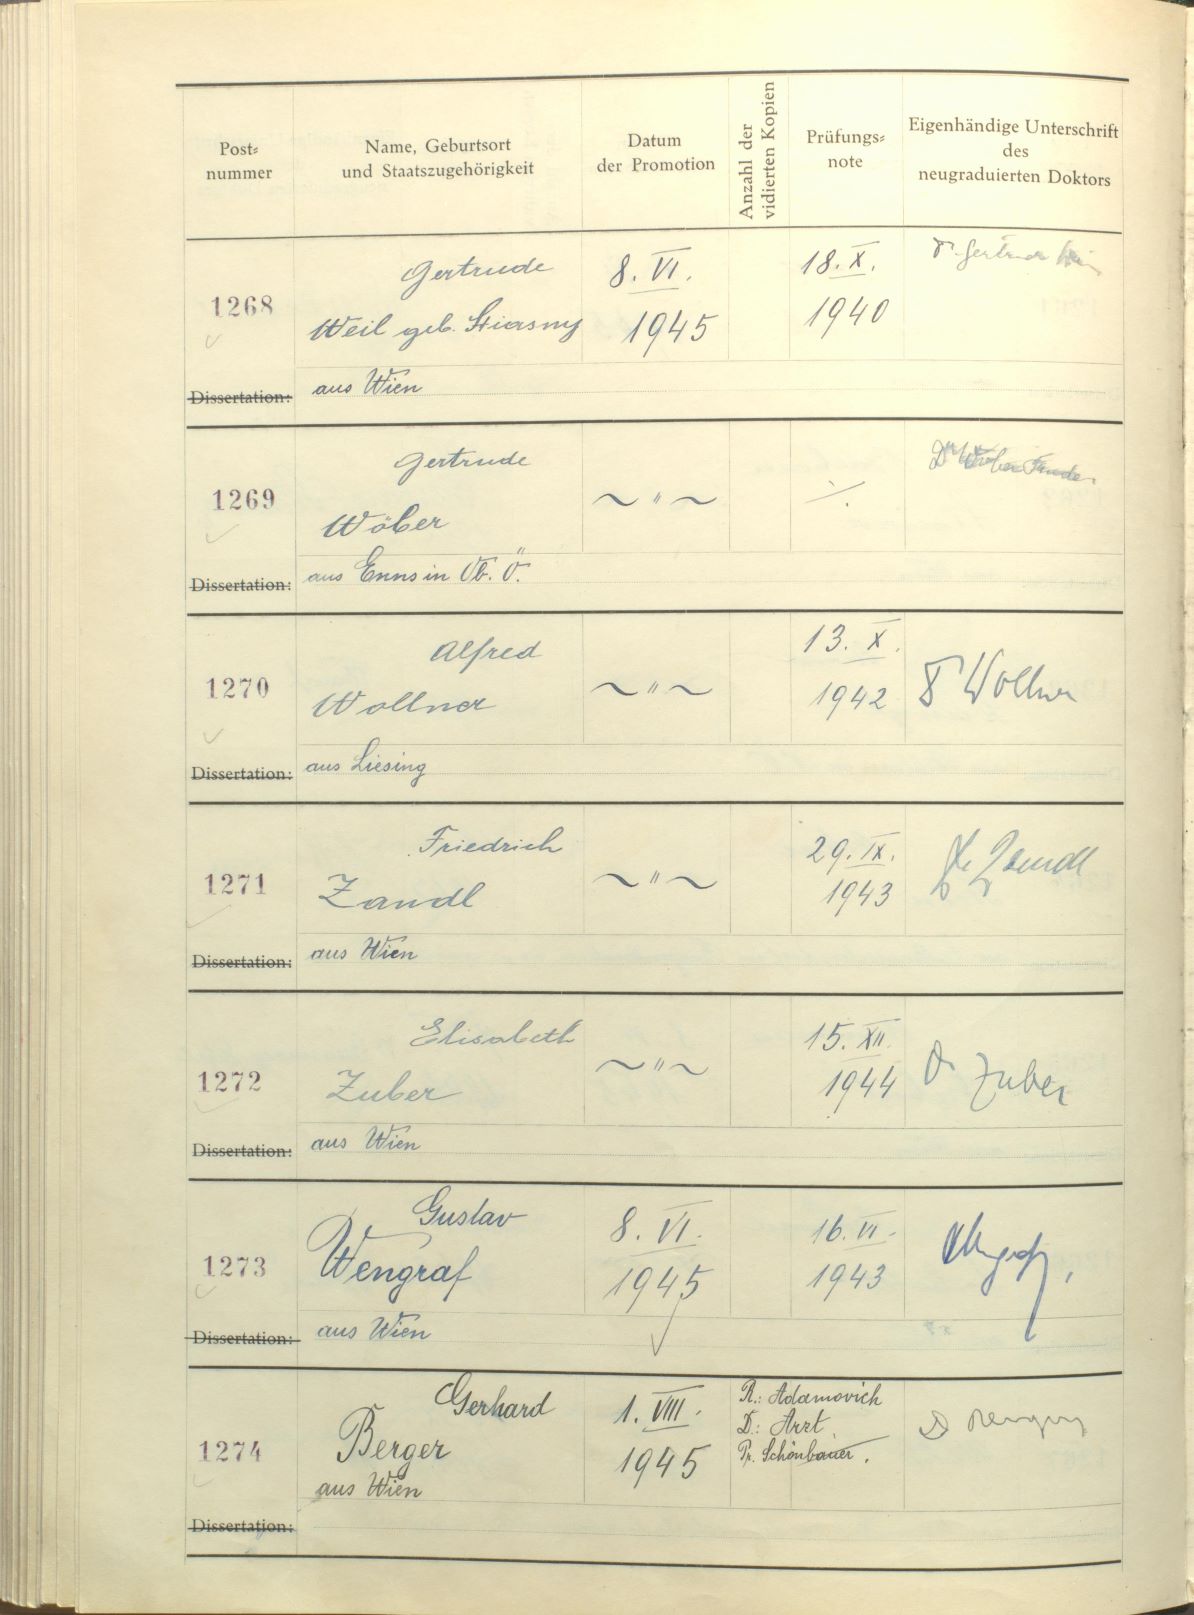 Post=
nummer
Name, Geburtsort
und Staatszugehörigkeit
Datum
der Promotion
Anzahl der
vidierten Kopien
Prüfungs=
note
Eigenhändige Unterschrift
des
neugraduierten Doktors
1268
Gertrude
Weil geb. Stiasny
8. VI.
1945
18. X.
1940
Dissertation:
aus Wien
1269
Gertrude
Wöber
~ " ~
·/.
Dissertation:
aus Enns in Ob. Ö.
1270
Alfred
Wollner
~ " ~
13. X.
1942
Wollner
Dissertation:
aus Liesing
1271
Friedrich
Zandl
~ " ~
29. IX.
1943
Zandl
Dissertation:
aus Wien
1272
Elisabeth
Zuber
~ " ~
15. XII.
1944
Dr Zuber
Dissertation:
aus Wien
1273
Gustav
Wengraf
8. VI.
1945
16. VI.
1943
Dissertation:
aus Wien
1274
Gerhard
Berger
aus Wien
1. VIII.
1945
R.: Adamovich
D.: Arzt.
Pr. Schönbauer.
Dissertation: